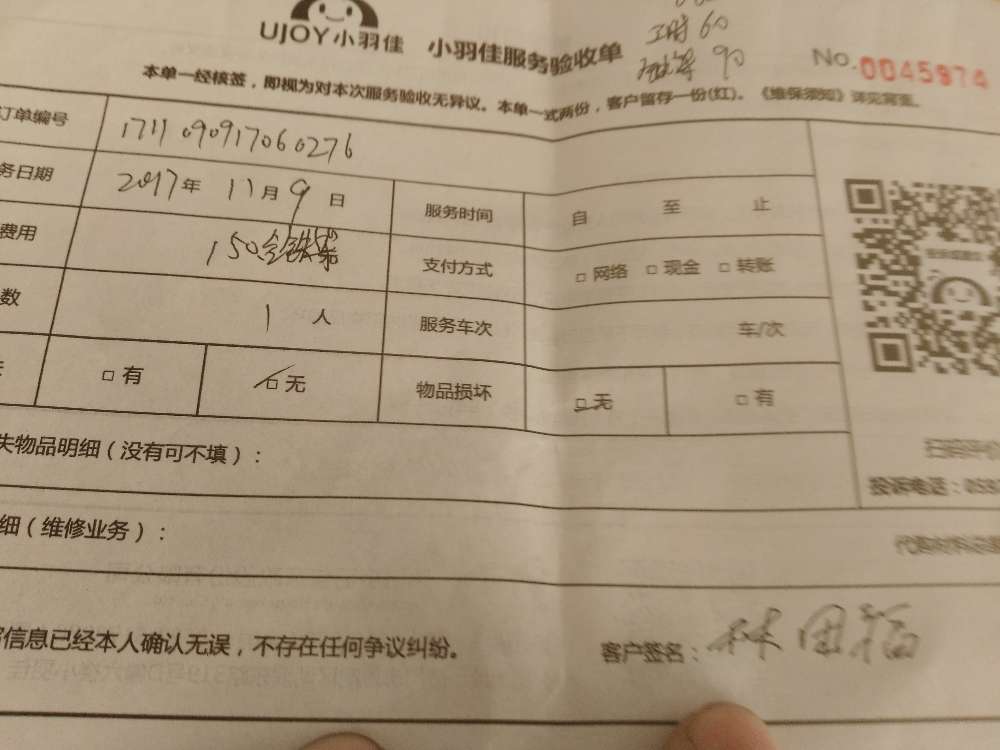 UJOY小羽佳 小羽佳服务验收单
工时60
90
No.0045974
本单一经核签，即视为对本次服务验收无异议。本单一式两份，客户留存一份(红)。《维保须知》详见背面。
订单编号 171109091706 0276
务日期 2017年 11月 9日 服务时间 自 至 止
费用 150 支付方式 □网络 □现金 □转账
数 1 人 服务车次 车/次
□有 □无 物品损坏 □无 □有
失物品明细（没有可不填）：
投诉电话：
细（维修业务）：
信息已经本人确认无误，不存在任何争议纠纷。
客户签名：林